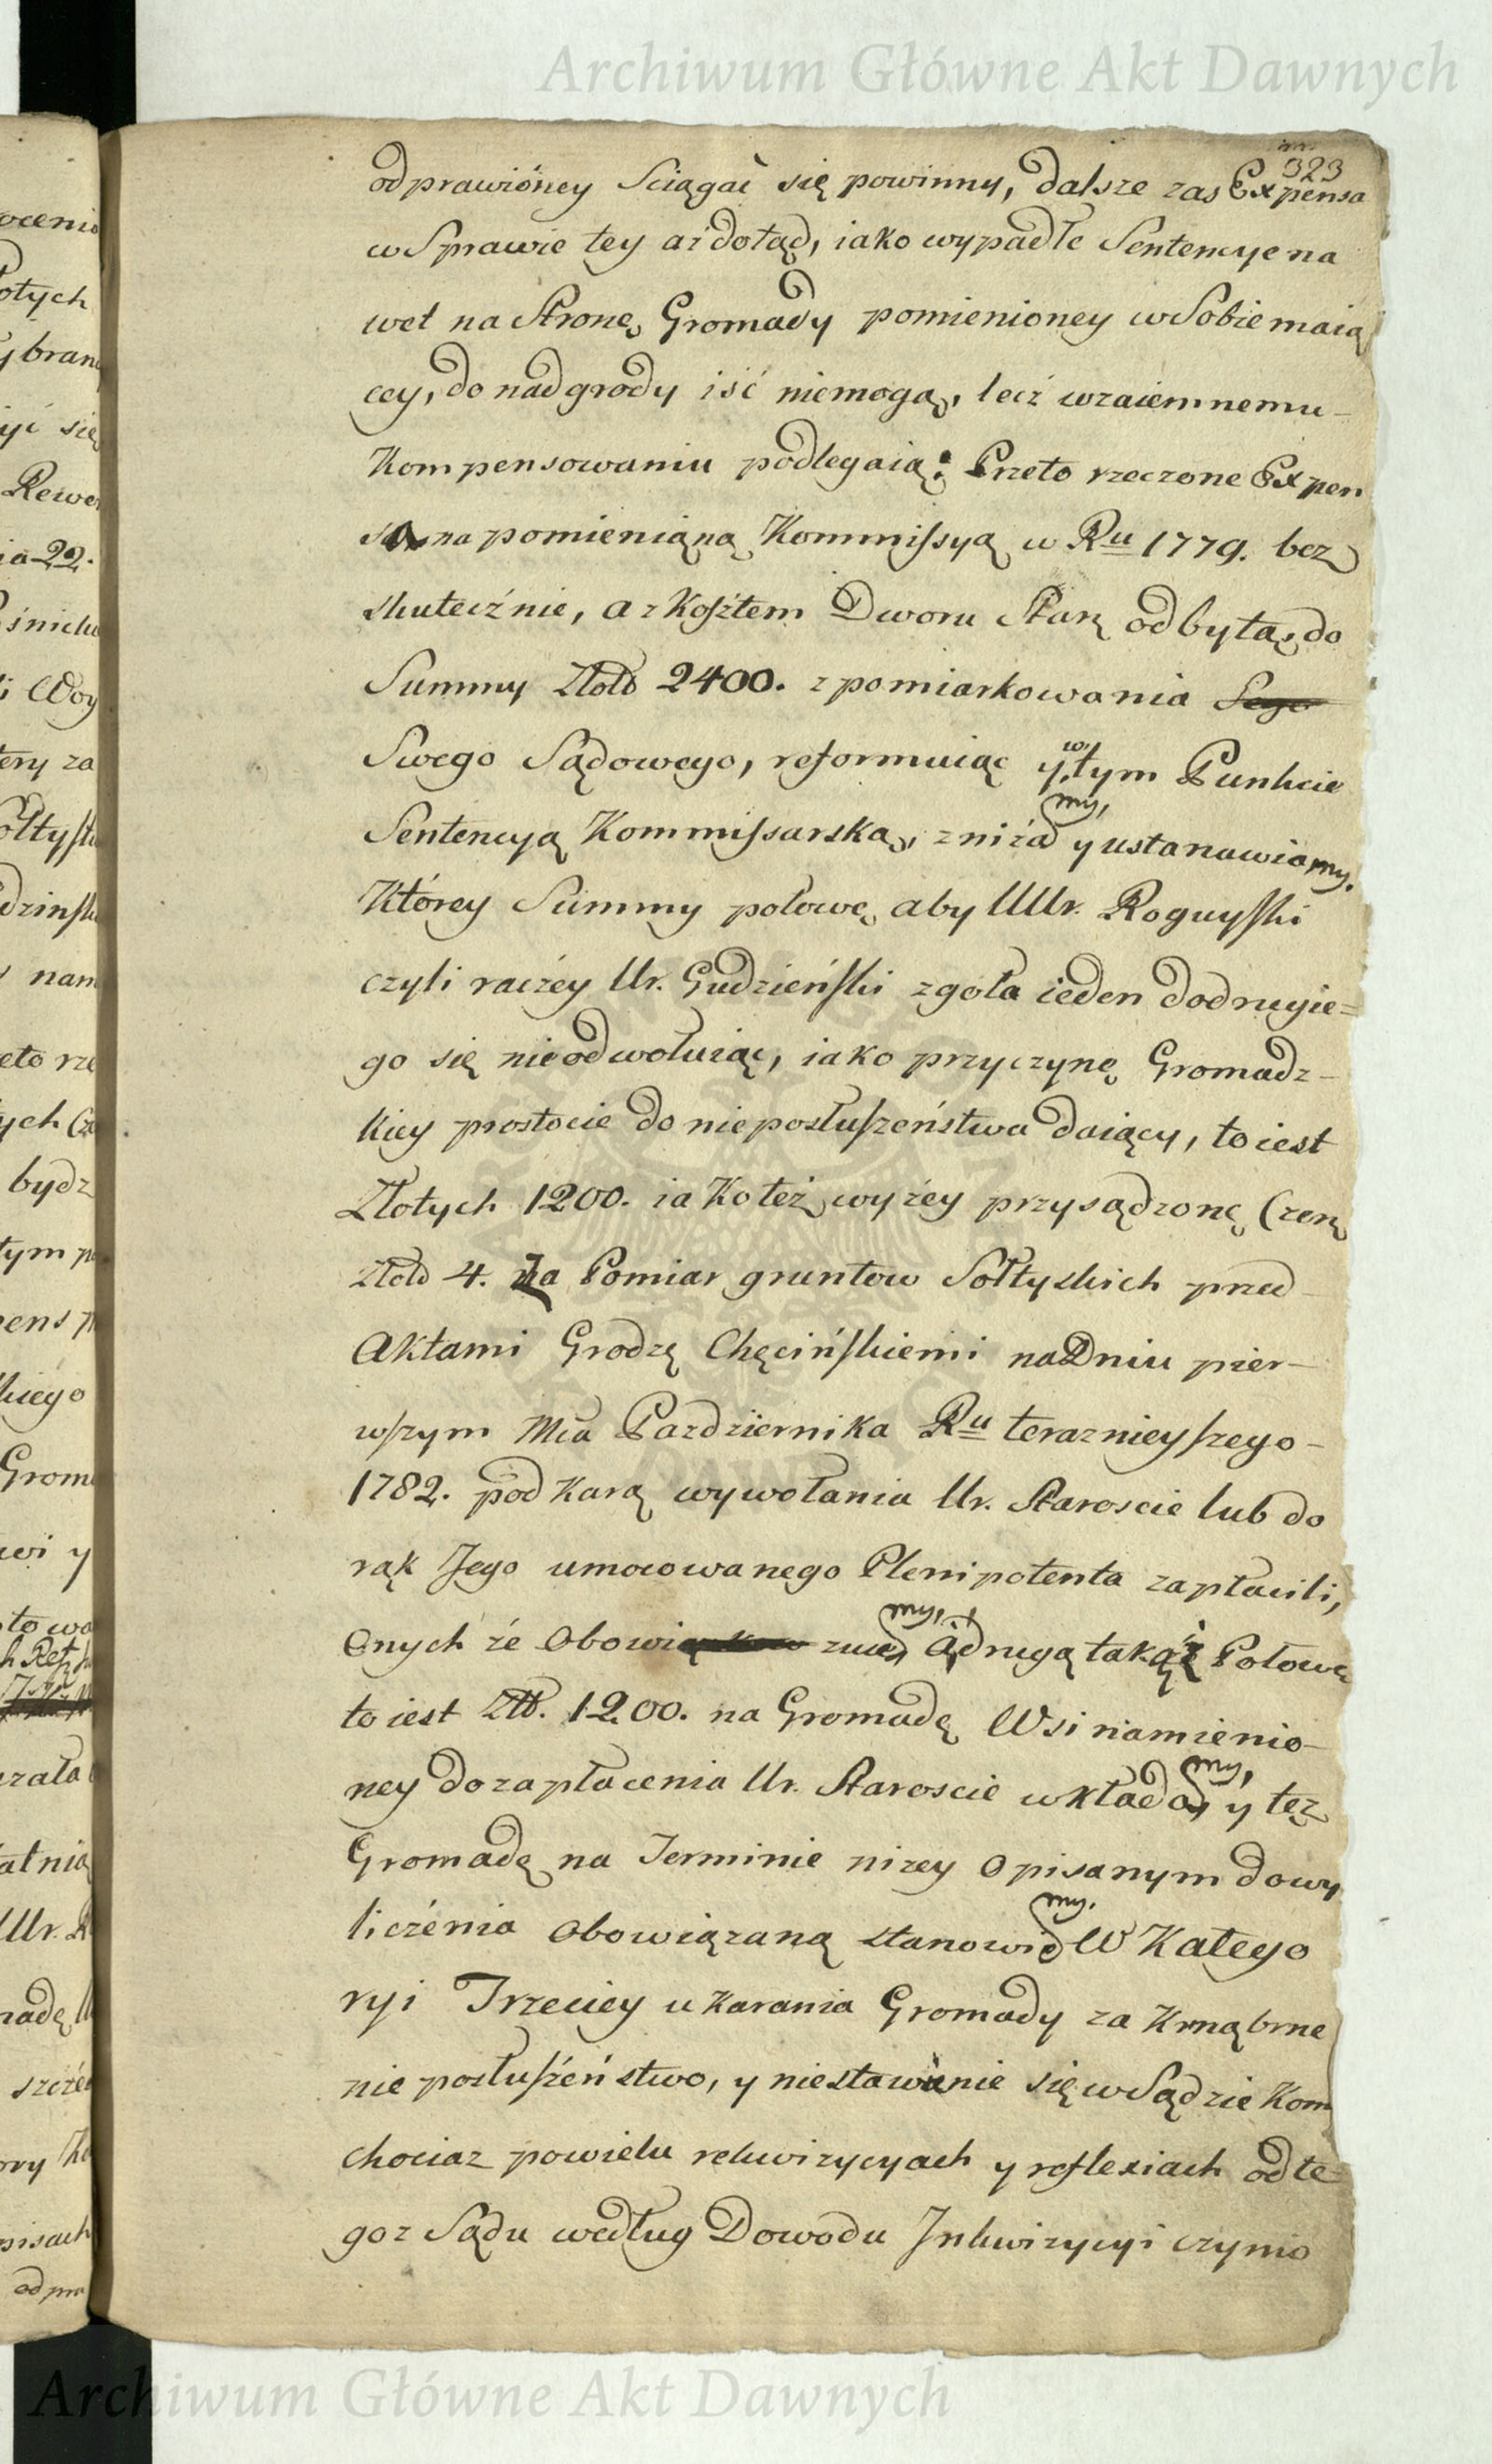 Archiwum Główne Akt Dawnych
323
odprawióney Sciągać się powinny, dalsze zas Expensa
w Sprawie tey aż dotąd, iako wypadłe Sentencye na
wet na Stronę Gromady pomienioney w Sobie maią
cey, do nadgrody iść niemogą, lecż wzaiemnemu
Kompensowaniu podlegaią: Przeto rzeczone Expen
sa na pomienianą Kommissyą w Ru 1779. bez
skutecżnie, a z Kosztem Dworu Starą odbytą, do
Summy Złotd 2400. z pomiarkowania Sego
Swego Sądowego, reformuiąc w tym Punkcie
Sentencyą Kommissarską, zniżamy, y ustanawiamy.
Którey Summy połowę aby UUr. Roguyski
czyli racżey Ur. Gudzieński zgoła ieden dodrugie=
go się nieodwołuiąc, iako przyczynę Gromadz-
kiey prostocie do nieposłuszeństwa daiący, to iest
Złotych 1200. iako też wyżey przysądzonę Czenę
Złotd 4. Za Pomiar gruntow Sołtyskich przed
Aktami Grodzę Chęcińskiemi na Dniu pier-
wszym Mca Pazdziernika Ru teraznieyszego-
1782. pod karą wywołania Ur. Staroscie lub do
rąk Jego umocowanego Plenipotenta zapłacili,
Onych że Obowi zuiemy, A drugą takąż Połowę
to iest Złt. 1200. na Gromadę Wsi namienio-
ney do zapłacenia Ur. Staroscie wkładamy, y tęż
Gromadę na Terminie niżey Opisanym do wy
licżenia Obowiązaną stanowiemy. W Katego
ryi Trzeciey ukarania Gromady za Krnąbrne
nie posłusżeństwo, y niestawienie się w Sądzie Kom
chociaz powielu rekwizycyach y reflexiach od te
goz Sądu według Dowodu Inkwizycyi czynio
Archiwum Główne Akt Dawnych